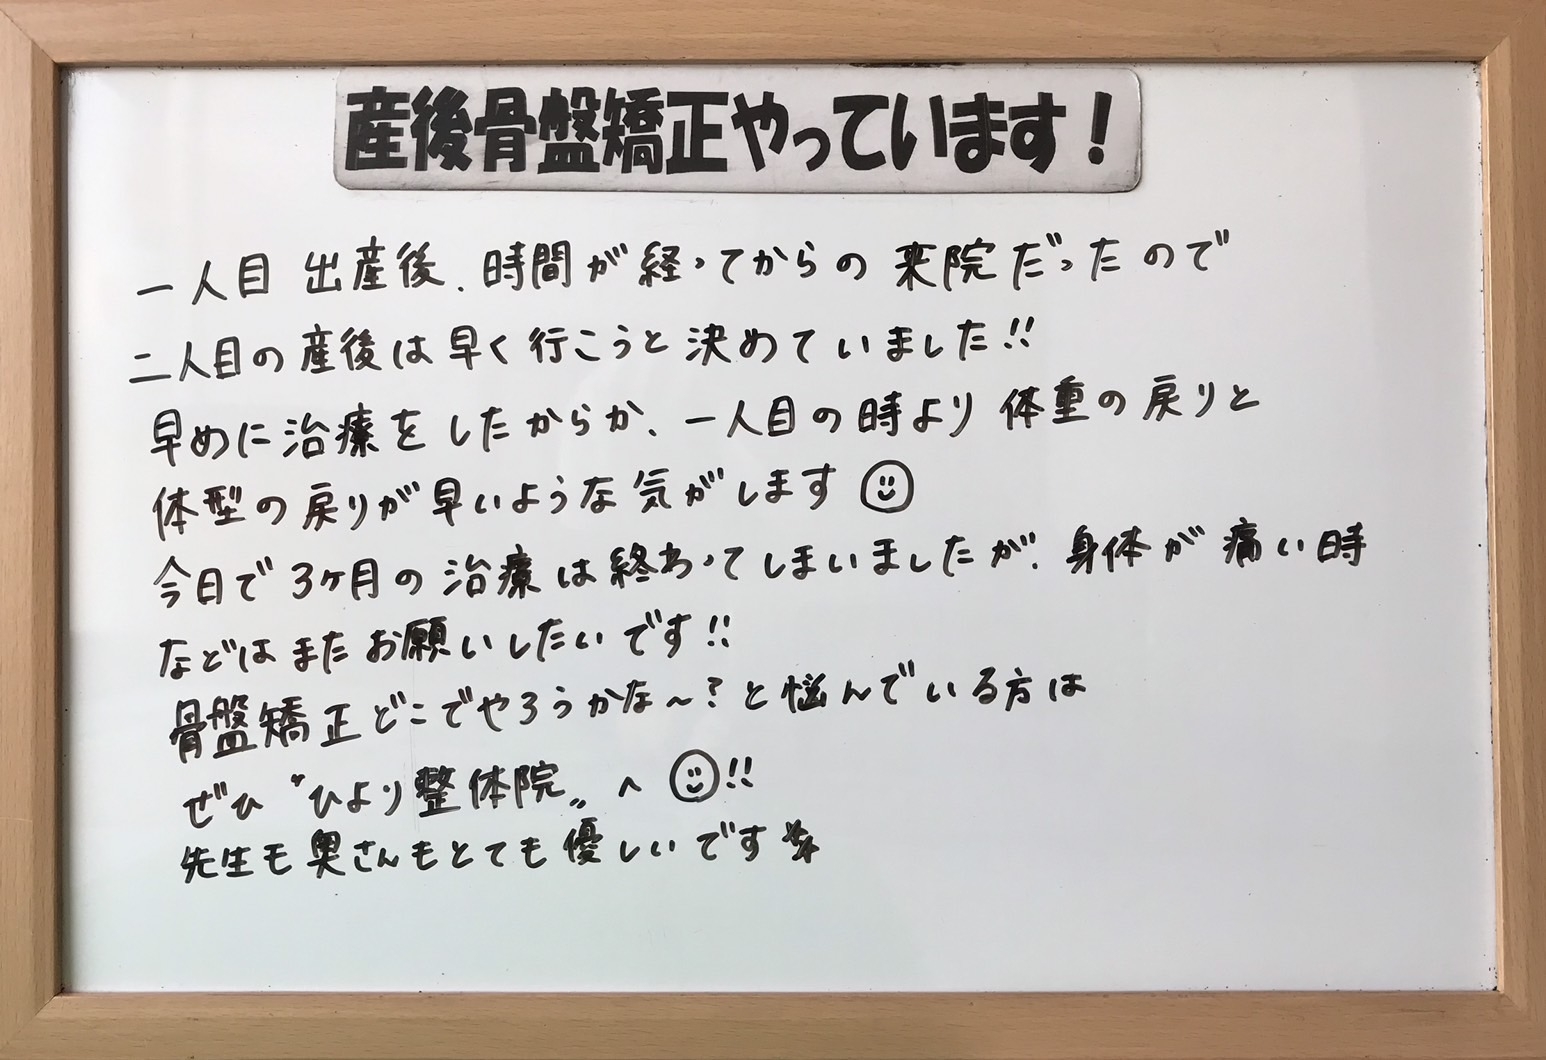 産後骨盤矯正やっています！
一人目 出産後、時間が経ってからの 来院だったので
二人目の産後は早く行こうと決めていました!!
早めに治療をしたからか、一人目の時より体重の戻りと
体型の戻りが早いような気がします☺
今日で3ヶ月の治療は終わってしまいましたが、身体が痛い時
などはまたお願いしたいです!!
骨盤矯正どこでやろうかな〜?と悩んでいる方は
ぜひ〝ひより整体院〟へ☺!!
先生も奥さんもとても優しいです☆